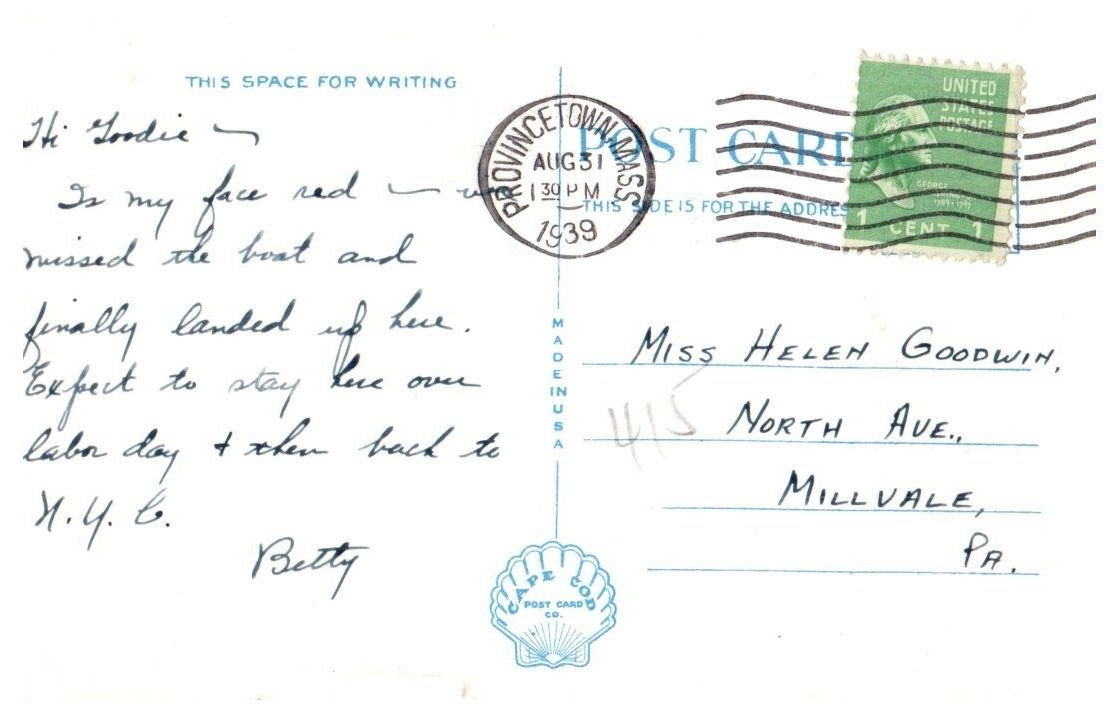 THIS SPACE FOR WRITING
Hi Goodie ~
Is my face red ~ we
missed the boat and
finally landed up here.
Expect to stay here over
labor day & then back to
N.Y.C.
Betty
PROVINCETOWN, MASS
AUG 31
1 30 PM
1939
POST CARD
THIS SIDE IS FOR THE ADDRES
UNITED
STATES
POSTAGE
GEORGE
WASHINGTON
1789-1797
1 CENT 1
MADE IN USA
MISS HELEN GOODWIN,
415 NORTH AVE.,
MILLVALE,
PA.
CAPE COD
POST CARD
CO.